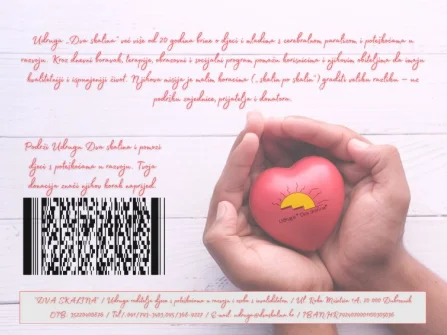 Udruga „Dva skalina" već više od 20 godina brine o djeci i mladima s cerebralnom paralizom i poteškoćama u
razvoju. Kroz dnevni boravak, terapije, obrazovni i socijalni program pomaže korisnicima i njihovim obiteljima da imaju
kvalitetniji i ispunjeniji život. Njihova misija je malim koracima („skalin po skalin") graditi veliku razliku – uz
podršku zajednice, prijatelja i donatora.
Podrži Udrugu Dva skalina i pomozi
djeci s poteškoćama u razvoju. Tvoja
donacija znači njihov korak naprijed.
"DVA SKALINA" / Udruga roditelja djece s poteškoćama u razvoju i osoba s invaliditetom / Ul. Roka Mišetića 1A, 20 000 Dubrovnik
OIB: / Tel: / E-mail: / IBAN: